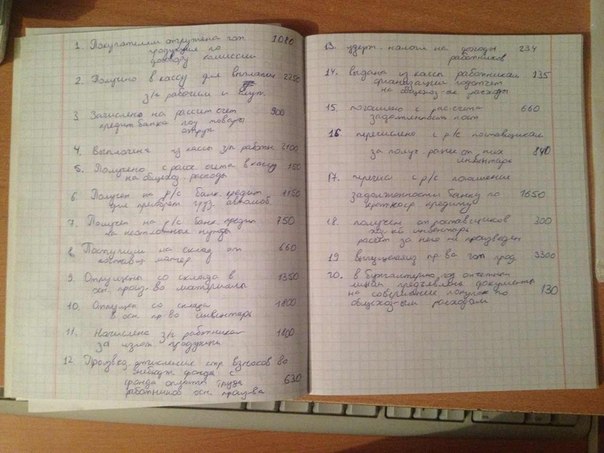 1. Покупателям отгружена гот. 1080
продукция по
договору комиссии
2. Получено в кассу для выплаты 2250
з/п рабочим и служ.
3. Зачислено на рассч счет 900
кредит банка под товары
отгруж
4. Выплачена из кассы з/п работн 2100
5. Получено с расч счета в кассу 150
на общехоз. расходы
6. Получен на р/с банк. кредит 1150
для приобрет груз. автомоб.
7. Получен на р/с банк. кредит 750
на неотложные нужды
8. Поступили на склад от 660
поставщ матер
9. Отпущено со склада в 1350
осн. произ-во материалы
10. Отпущен со склада 1800
в осн. пр-во инвентарь
11. Начислена з/п работникам 1800
за изгот продукции
12. Произвед отчисление стр взносов во
внебюдж фонды
фонда оплаты труда 630
работников осн. произ-ва
13. удерж. налоги на доходы 234
работников
14. выдана из кассы работникам 135
организации подотчет
на общехоз-ые расходы
15 погашено с рас счета 660
задолженность пост
16 перечислено с р/с поставщикам
за получ ранее от них 840
инвентарь
17. перечисл с р/с погашение
задолженности банку по 1650
краткоср кредиту
18 получен от поставщиков 300
инвентарь
расчет за него не произведен
19 выпущена из пр-ва гот прод. 3300
20. в бухгалтерию под отчетным
лицом предъявлены документы
на совершение покупок по 130
общехоз-ым расходам